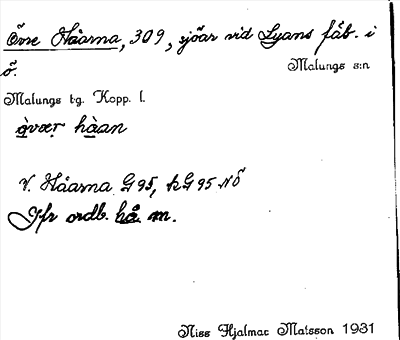 Övre Håarna, 309, sjöar vid Lyans fäb. i
ö.
Malungs s:n
Malungs tg. Kopp. l.
å̀vær hàan
V. Håarna G95, kG95 NÖ
Jfr ordb. hå m.
Niss Hjalmar Matsson 1931